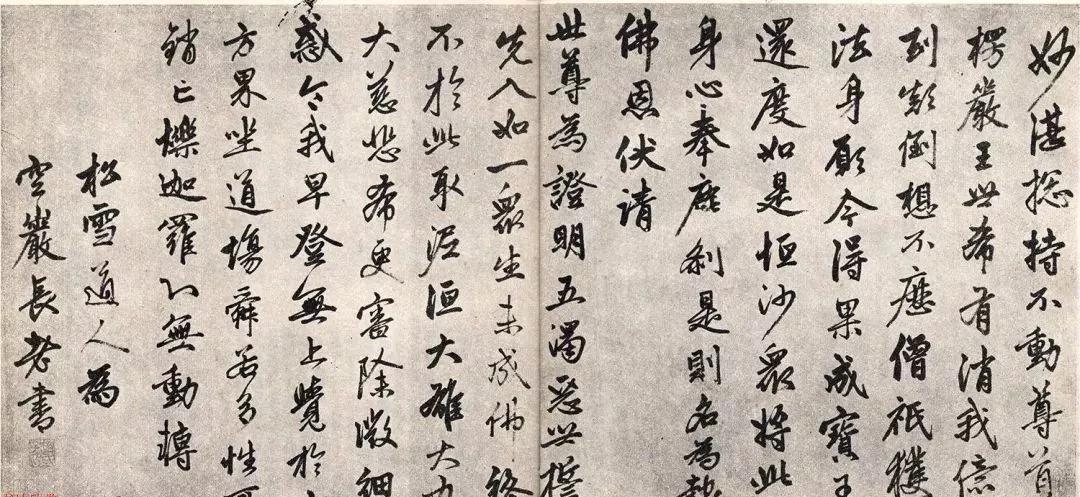 妙湛捴持不動尊首
楞嚴王世希有消我億
劫顛倒想不歷僧祇獲
法身願今得果成寶王
還度如是恒沙衆將此
身心奉塵刹是則名為報
佛恩伏請
世尊為證明五濁惡世誓
先入如一衆生未成佛終
不於此取泥洹大雄大力
大慈悲希更審除微細
惑令我早登無上覺於
方界坐道塲舜若多性可
銷亡爍迦羅心無動轉
松雪道人為
空巖長老書